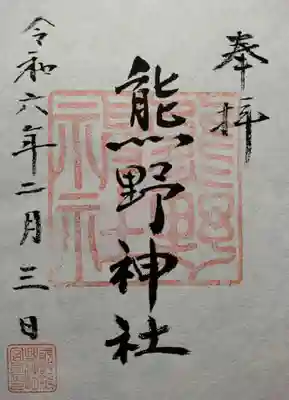 奉拝
熊野神社
令和六年二月三日